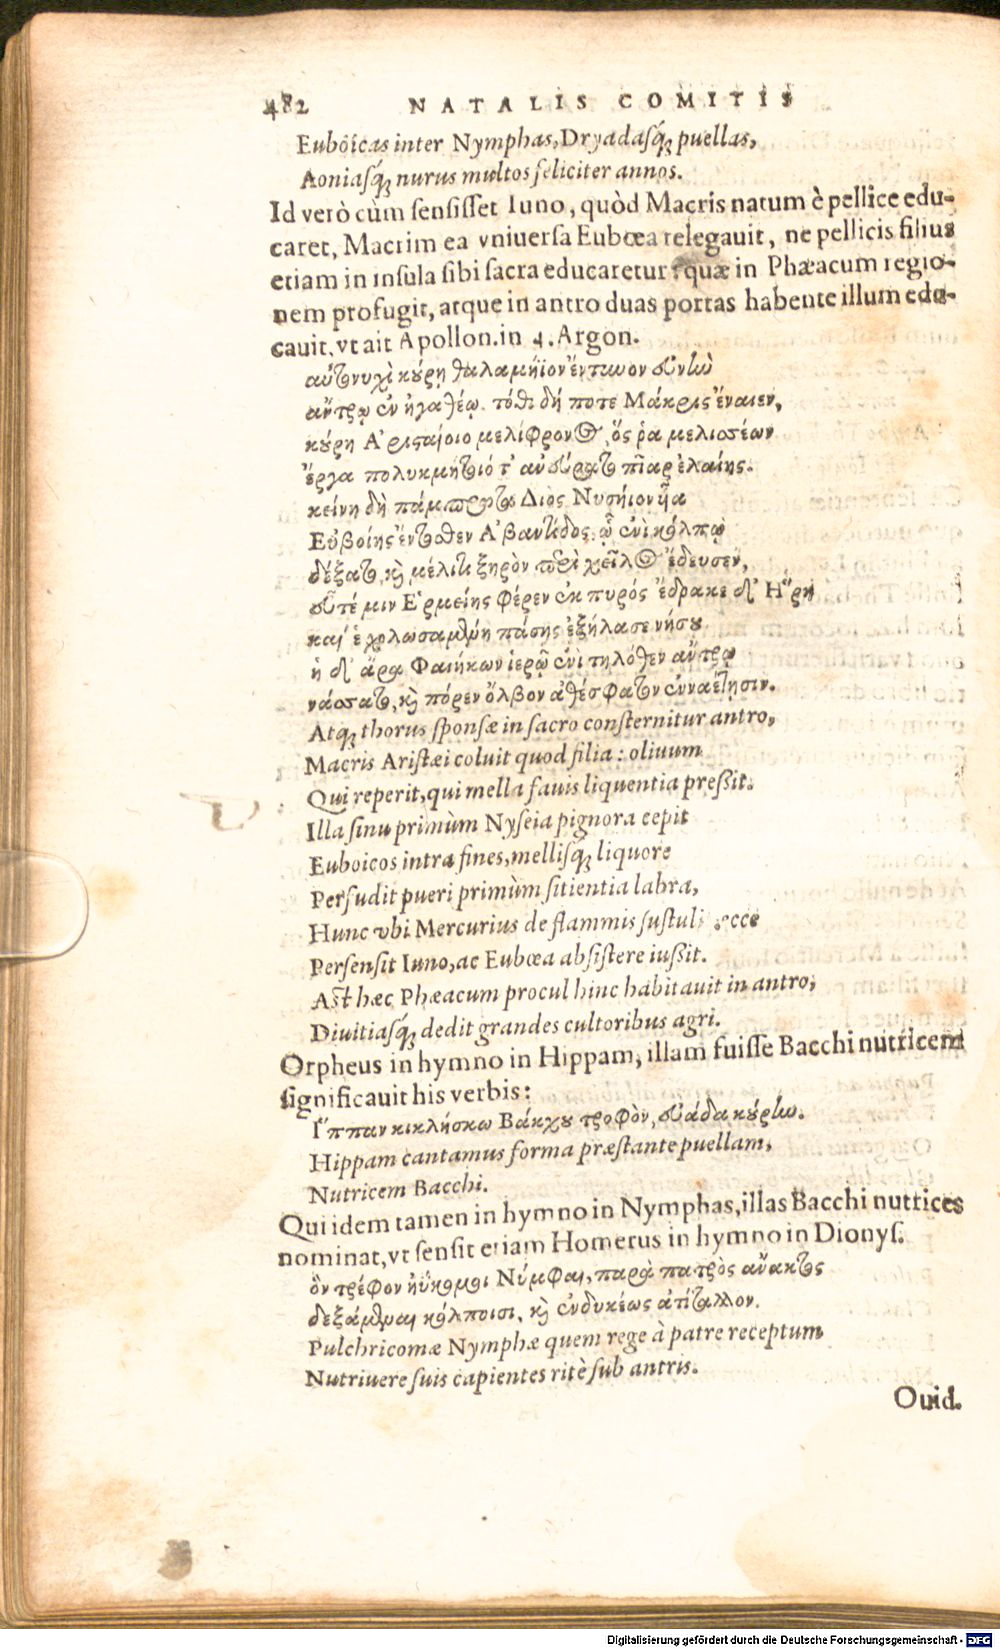 482 NATALIS COMITIS
Euboicas inter Nymphas, Dryadasq́; puellas,
Aoniasq́; nurus multos feliciter annos.
Id verò cùm sensisset Iuno, quòd Macris natum è pellice edu-
caret, Macrim ea vniuersa Eubœa relegauit, ne pellicis filius
etiam in insula sibi sacra educaretur: quæ in Phæacum regio-
nem profugit, atque in antro duas portas habente illum edu-
cauit, vt ait Apollon. in 4. Argon.
αὐτονυχὶ κούρῃ θαλαμήϊον ἔντυον εὐνὴν
ἄντρῳ ἐν ἠγαθέῳ. τόθι δή ποτε Μάκρις ἔναιεν,
κούρη Ἀρισταίοιο μελίφρονος, ὅς ῥα μελισσέων
ἔργα πολυκμήτοιό τ' ἀνεύρατο πῖαρ ἐλαίης.
κείνη δὴ πάμπρωτα Διὸς Νυσήιον ἧα
Εὐβοίης ἔντοσθεν Ἀβαντίδος, ᾧ ἐνὶ κόλπῳ
δέξατο, καὶ μέλιτι ξηρὸν περὶ χεῖλος ἔδευσεν,
εὖτέ μιν Ἑρμείης φέρεν ἐκ πυρός ἔδρακε δ' Ἥρη
καί ἑ χολωσαμένη πάσης ἐξήλασε νήσου
ἡ δ' ἄρα Φαιήκων ἱερῷ ἐνὶ τηλόθεν ἄντρῳ
νάσσατο, καὶ πόρεν ὄλβον ἀθέσφατον ἐνναέτῃσιν.
Atq́; thorus sponsæ in sacro consternitur antro,
Macris Aristæi coluit quod filia: oliuum
Qui reperit, qui mella fauis liquentia pressit.
Illa sinu primùm Nyseia pignora cepit
Euboicos intra fines, mellisq́; liquore
Persudit pueri primùm sitientia labra,
Hunc vbi Mercurius de flammis sustuli ecce
Persensit Iuno, ac Eubœa absistere iussit.
Ast hæc Phæacum procul hinc habitauit in antro,
Diuitiasq́; dedit grandes cultoribus agri.
Orpheus in hymno in Hippam, illam fuisse Bacchi nutricem
significauit his verbis:
Ἵππαν κικλήσκω Βάκχου τροφὸν, εὐάδα κούρην.
Hippam cantamus forma præstante puellam,
Nutricem Bacchi.
Qui idem tamen in hymno in Nymphas, illas Bacchi nutrices
nominat, vt sensit etiam Homerus in hymno in Dionys.
ὃν τρέφον ἠΰκομοι Νύμφαι, παρὰ πατρὸς ἄνακτος
δεξάμεναι κόλποισι, καὶ ἐνδυκέως ἀτίταλλον.
Pulchricomæ Nymphæ quem rege à patre receptum
Nutriuere suis capientes ritè sub antris.
Ouid.
Digitalisierung gefördert durch die Deutsche Forschungsgemeinschaft - DFG